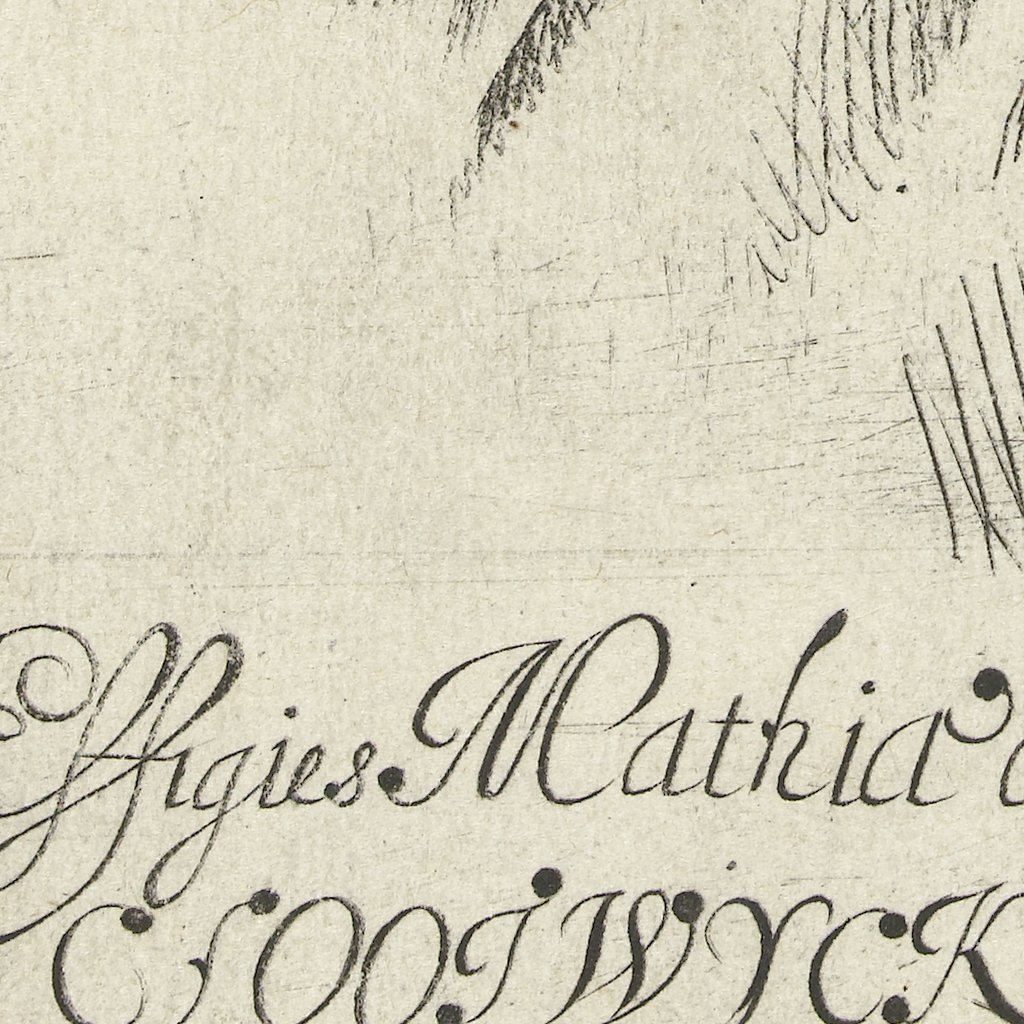 Effigies Mathia
CLOOTWYCK